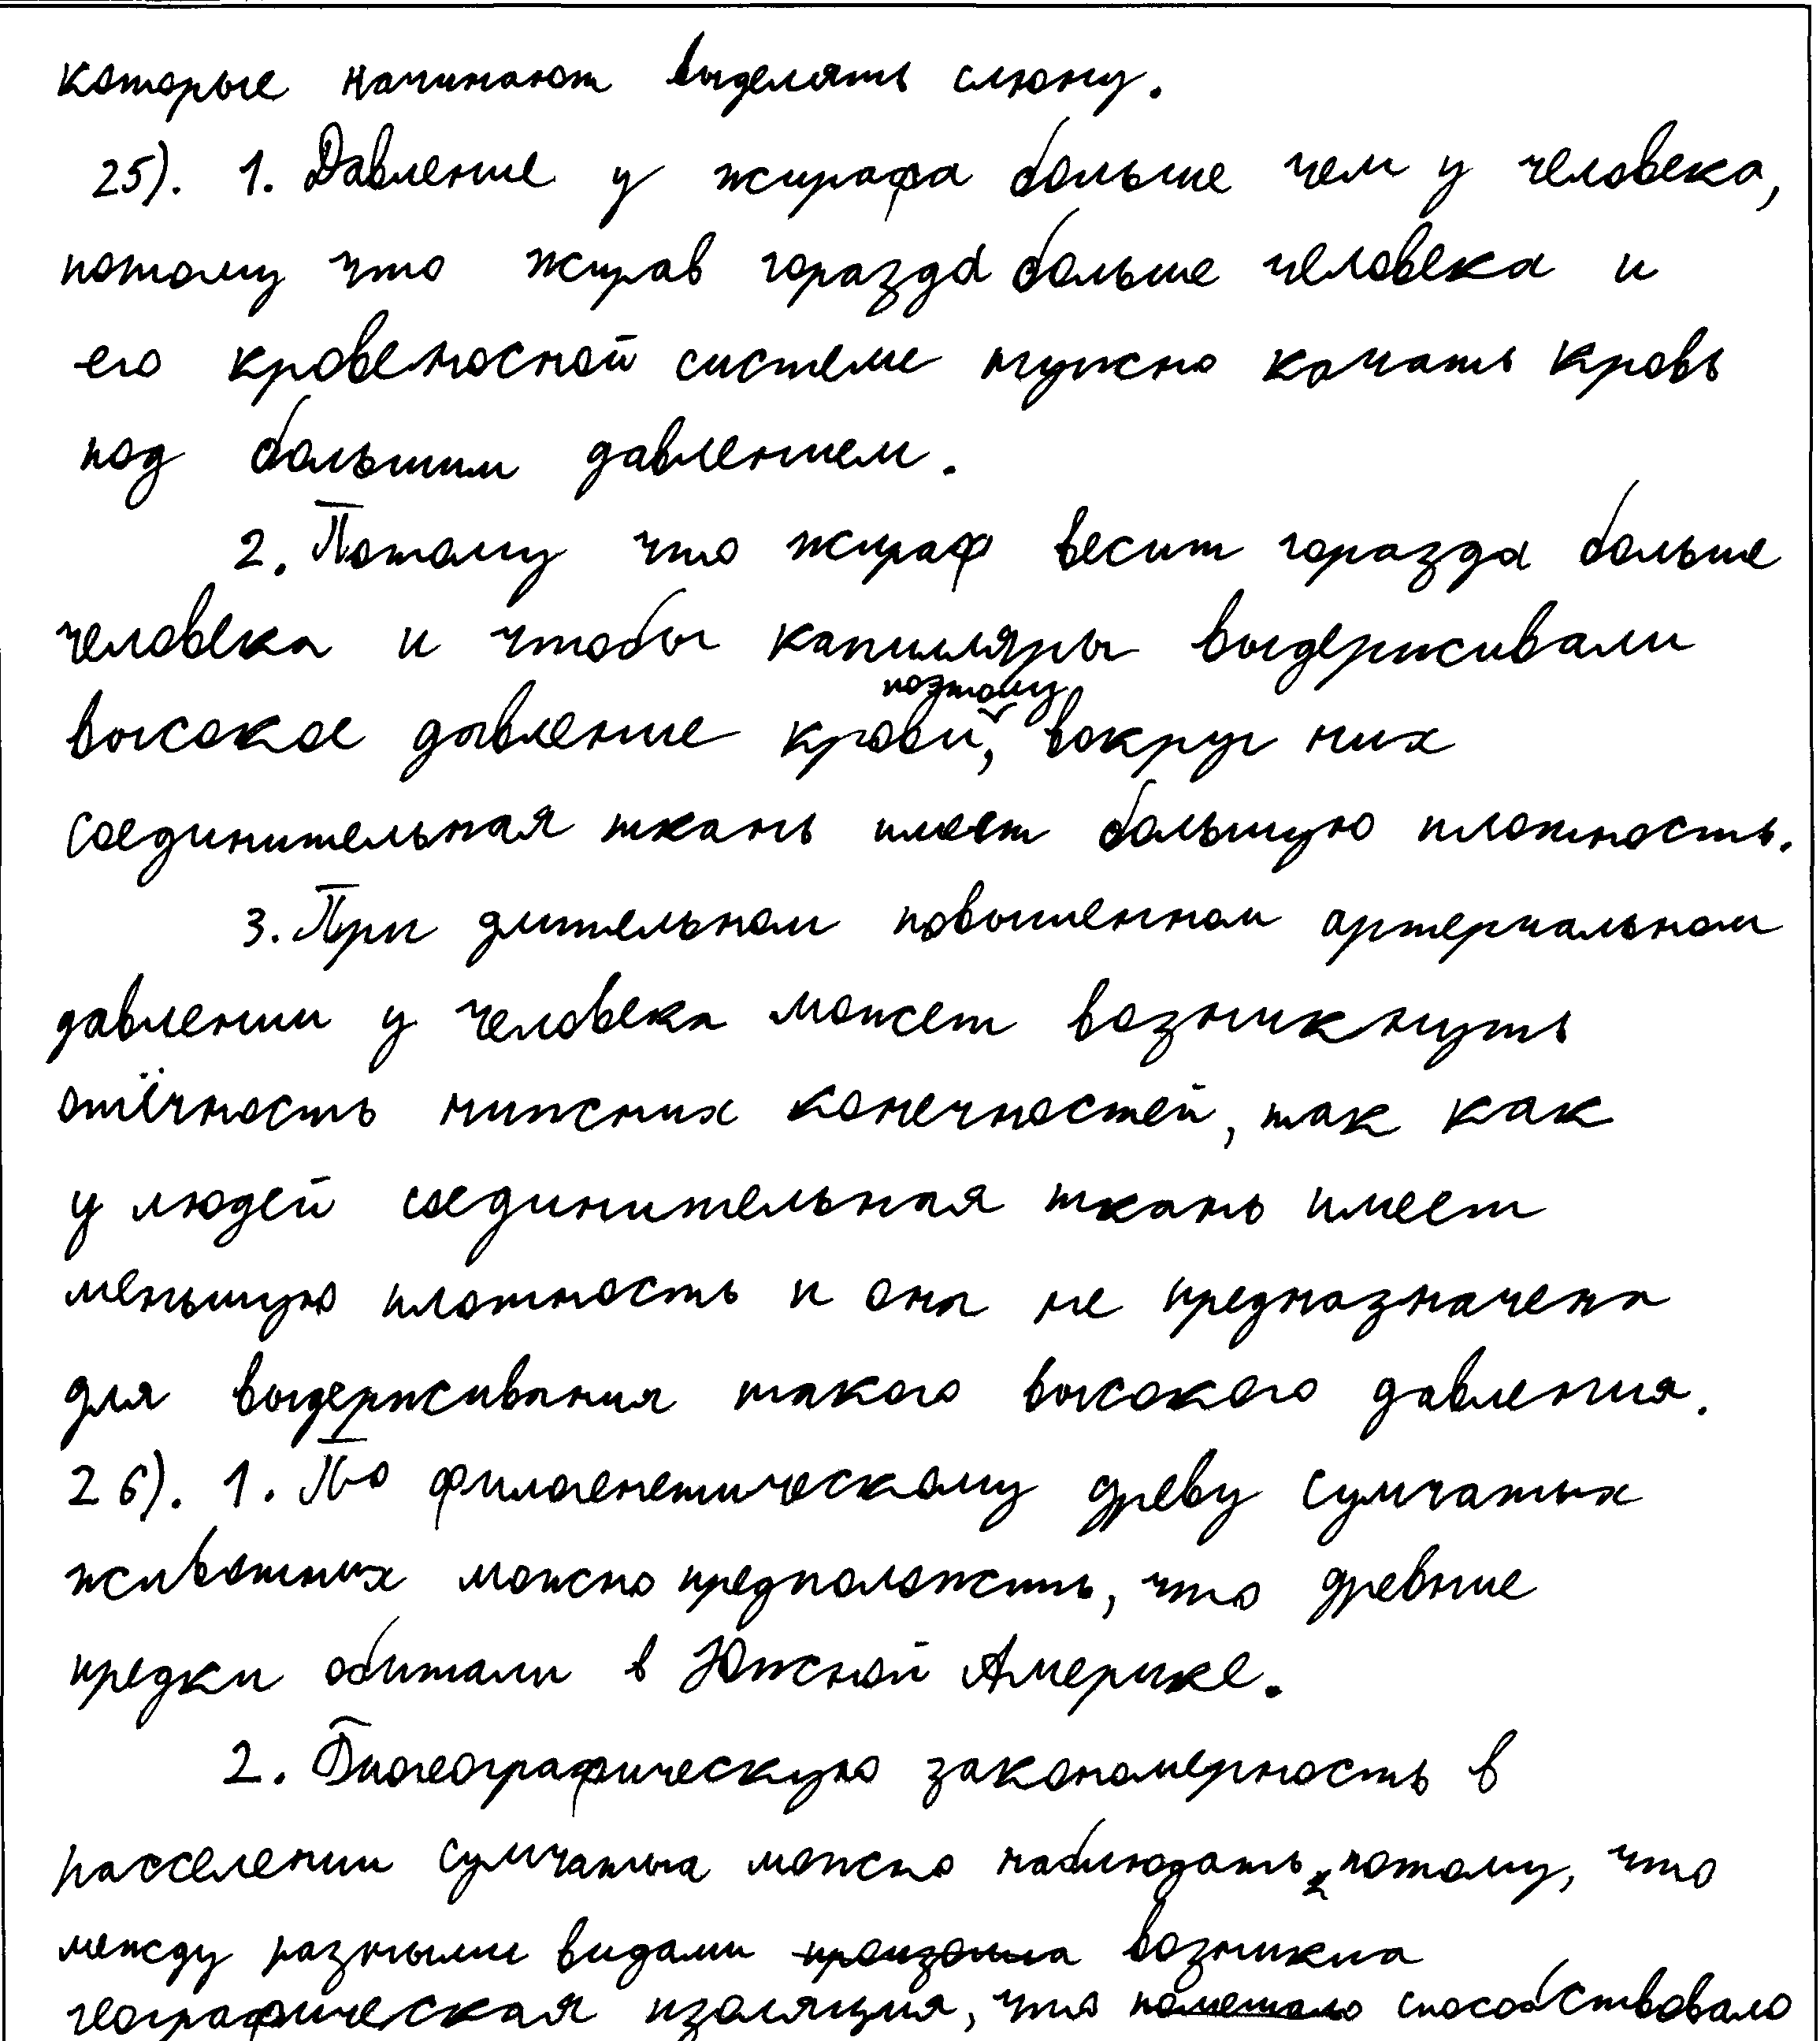 которые начинают выделять слюну.
25). 1. Давление у жирафа больше чем у человека,
потому что жирав горазда больше человека и
его кровеносной системе нужно качать кровь
под большим давлением.
2. Потому что жираф весит горазда больше
человека и чтобы капилляры выдерживали
поэтому
высокое давление крови, вокруг них
соединительная ткань имеет большую плотность.
3. При длительном повышенном артериальном
давлении у человека может возникнуть
отёчность нижних конечностей, так как
у людей соединительная ткань имеет
меньшую плотность и она не предназначена
для выдерживания такого высокого давления.
26). 1. По филогенетическому древу сумчатых
животных можно предположить, что древние
предки обитали в Южной Америке.
2. Биогеографическую закономерность в
расселении сумчатых можно наблюдать потому, что
между разными видами произошла возникла
географическая изоляция, что помешало способствовало